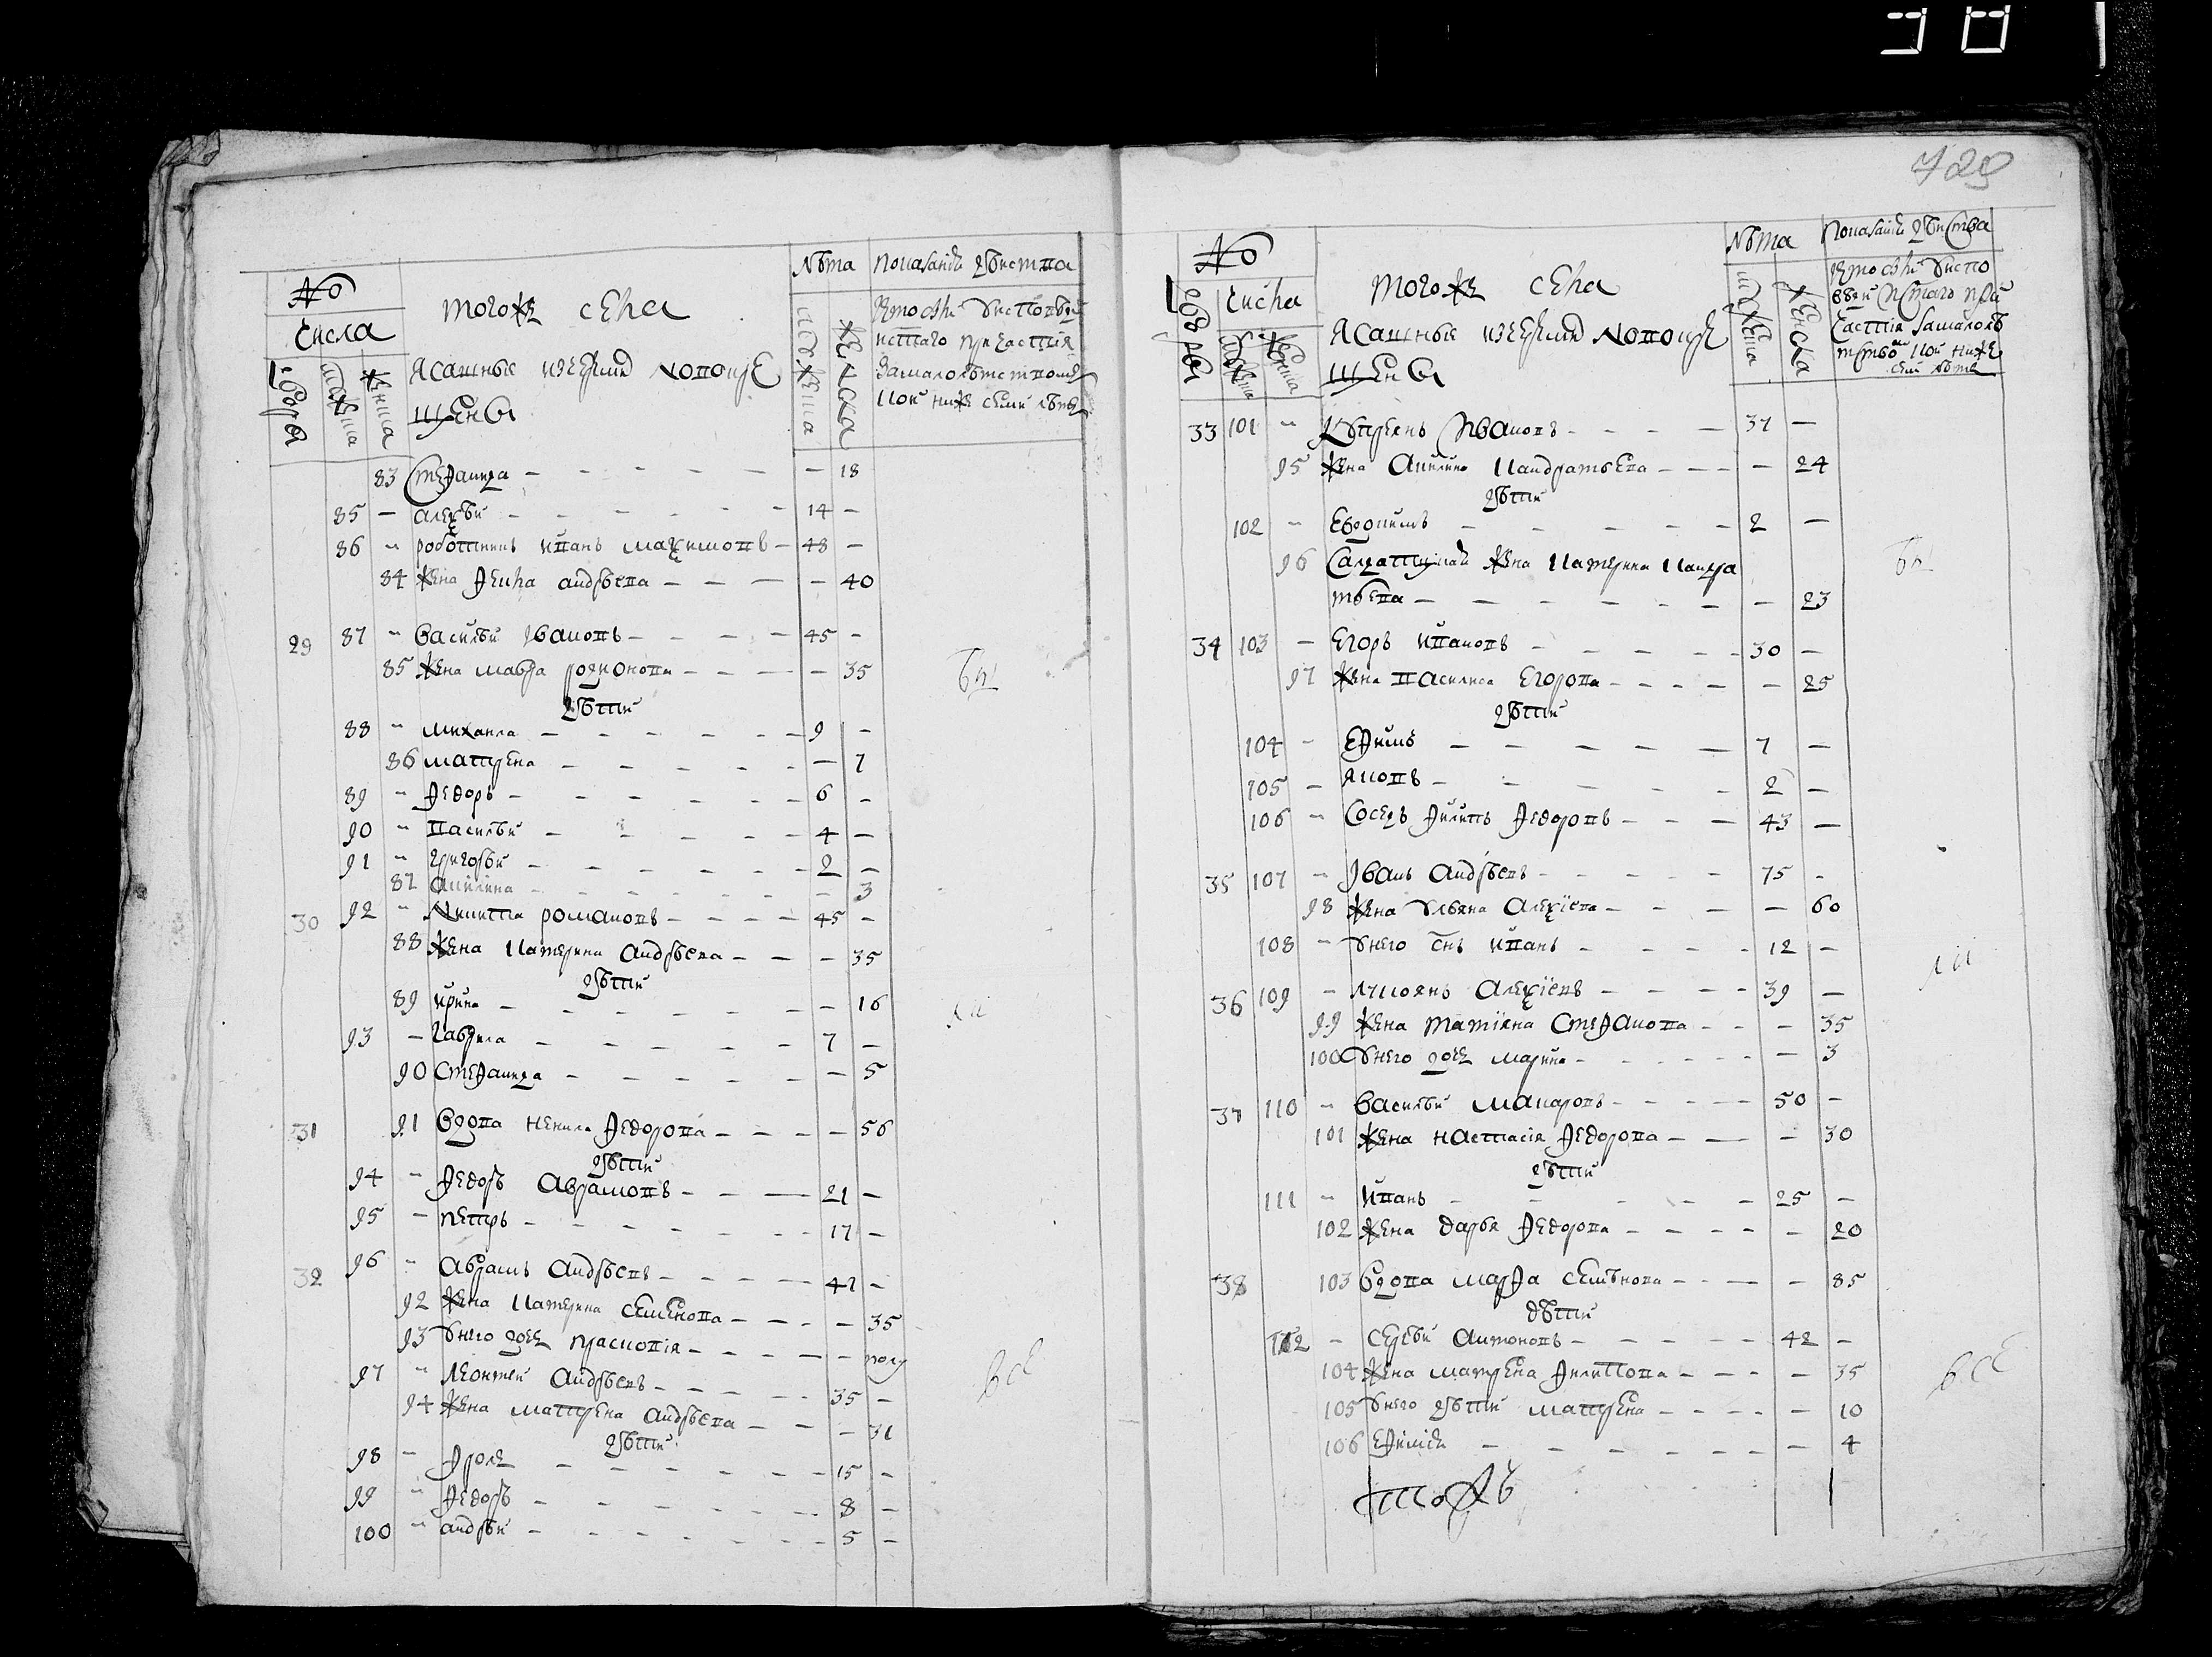 729
№
Числа
Дворовъ
Мужеска
Женска
Тогожъ села
Ясашные изчуваш новокре
щены
Лѣта
Мужеска
Женска
Показаніе дѣиства
83 Стефанида — 18
85 — Алеѯѣи 14 —
86 — работникъ иванъ маѯимовъ 48 —
84 жена Фекла андрѣева — 40
29 87 — василѣи Ивановъ 45 —
85 жена мавра родионова — 35
дѣти
88 — михаила 9 —
86 матрена — 7
89 — Федоръ 6 —
90 — василѣи 4 —
91 — григорѣи 2 —
87 акилина — 3
30 92 — Никита романовъ 45 —
88 жена катерина андрѣева — 35
дѣти
89 ирина — 16
93 — гаврила 7 —
90 стефанида — 5
31 91 вдова ненила Федорова — 56
дѣти
94 — Федоръ аврамовъ 21 —
95 — петръ 17 —
32 96 — аврамъ андрѣевъ 47 —
92 жена катерина семенова — 35
93 Унего дочь прасковія — полу
97 — леонтеи андрѣевъ 35 —
94 жена матрена андрѣева — 31
дѣти
98 — Фролъ 15 —
99 — Федоръ 8 —
100 — андрѣи 5 —
№
Числа
Дворовъ
Мужеска
Женска
Тогожъ села
Ясашные изчуваш новокре
щены
Лѣта
Мужеска
Женска
Показаніе дѣиства
33 101 — Купреянъ Ивановъ 37 —
95 жена акилина кандратьева — 24
дѣти
102 — Евдокимъ 2 —
96 Салдатцкая жена катерина кандра
тьева — 23
34 103 — Егоръ ивановъ 30 —
97 жена василиса Егорова — 25
дѣти
104 — Ефимъ 7 —
105 — яковъ 2 —
106 — Соседъ Филипъ Федоровъ 43 —
35 107 — Иванъ андрѣевъ 75 —
98 жена ульяна алеѯіева — 60
108 — Унего снъ иванъ 12 —
36 109 — лукоянъ алеѯіевъ 39 —
99 жена татіяна стефанова — 35
100 Унего дочь марина — 3
37 110 — василѣи макаровъ 50 —
101 жена настасія Федорова — 30
дѣти
111 — иванъ 25 —
102 жена дарья Федорова — 20
38 103 вдова марфа семѣнова — 85
дѣти
112 — сергѣи антоновъ 42 —
104 жена матрена Филипова — 35
105 Унего дѣти матрена — 10
106 ефимія — 4